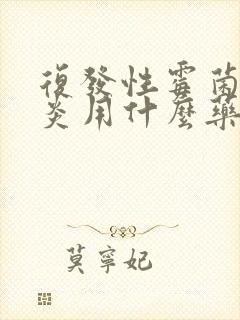 復發性霉菌
炎用什麼藥
莫寧妃